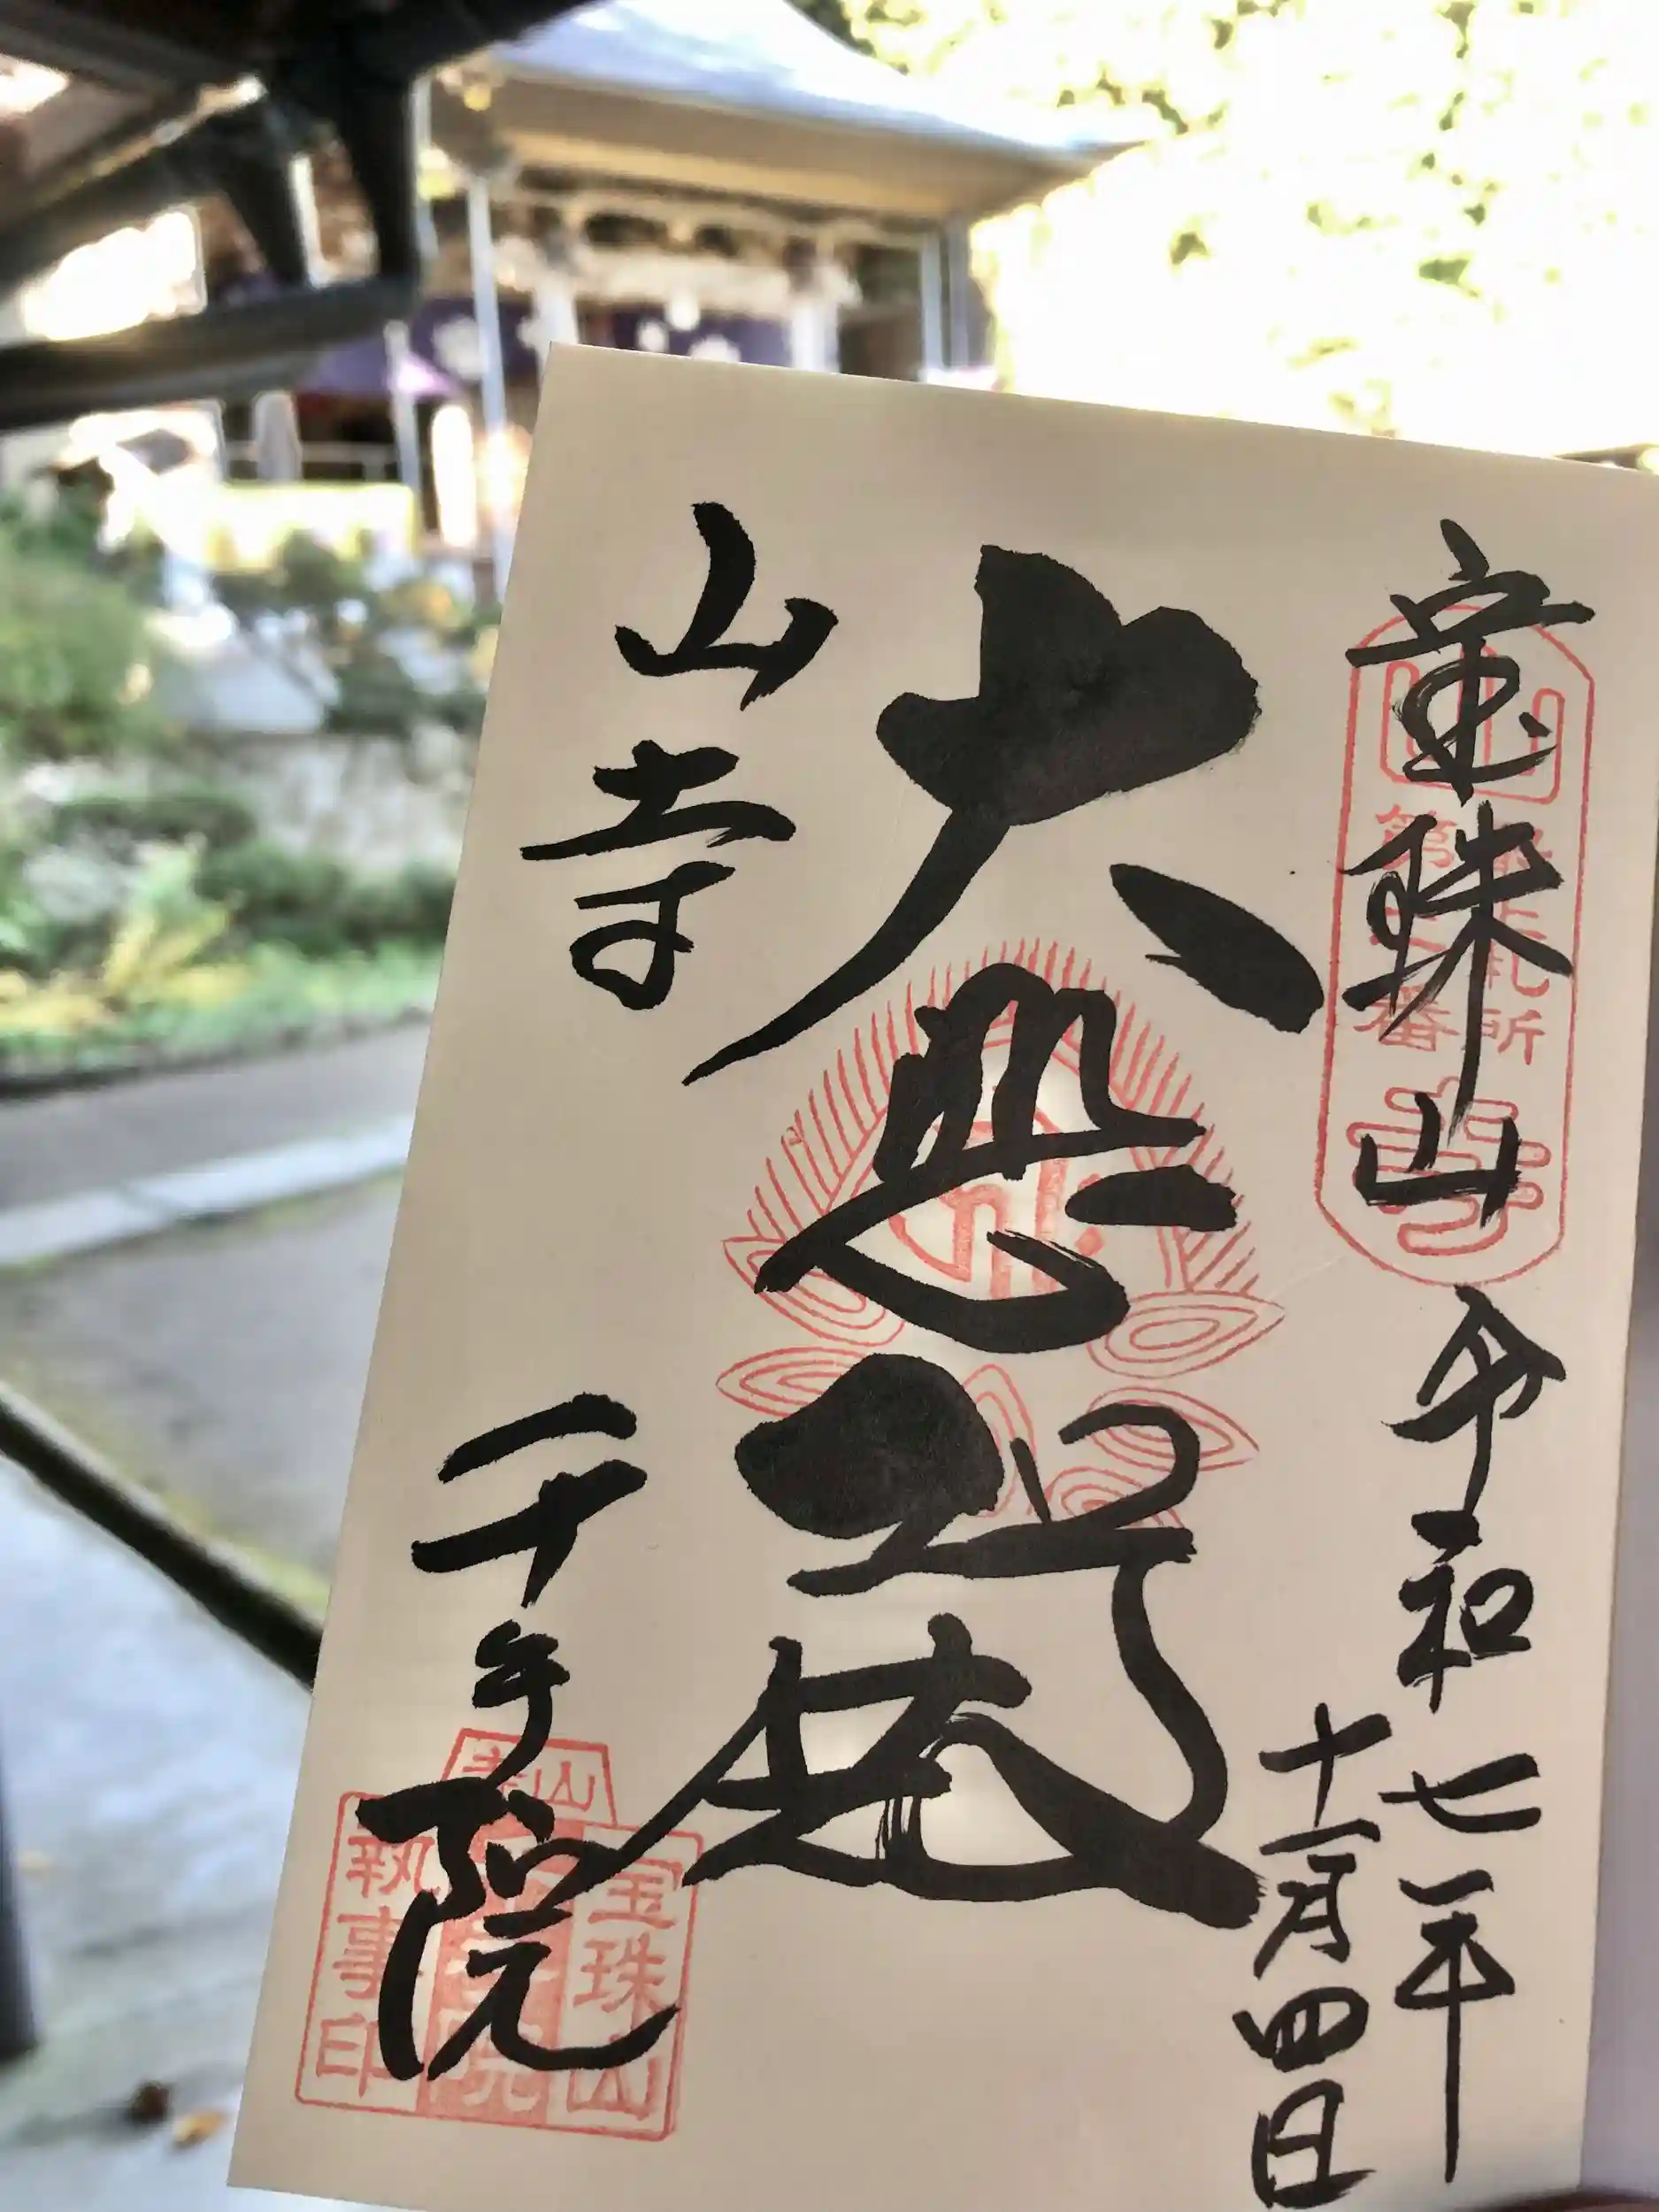 宝珠山 令和七年
十一月四日
大悲
山寺 千手院
山寺
札所
第二番
山寺
宝珠山
千手院
執事印